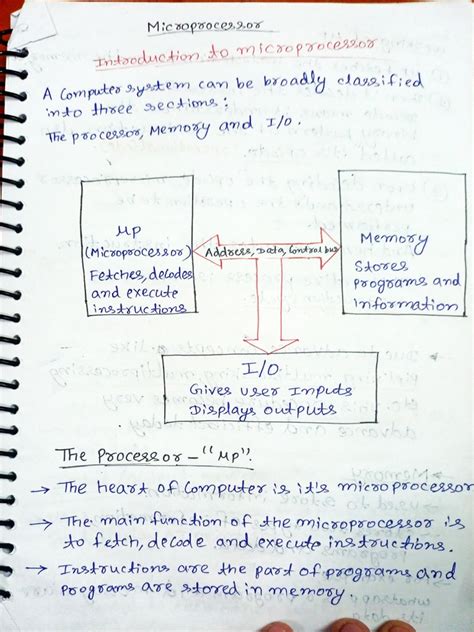 Microprocessor
Introduction to microprocessor
A Computer system can be broadly classified
into three sections:
The processor, Memory and I/O.
μP
(Microprocessor)
Fetches, decodes
and execute
instructions
Address, Data, Control bus
Memory
Stores
programs and
Information
I/O
Gives user Inputs
Displays outputs
The Processor – "μp".
→ The heart of Computer is it's microprocessor
→ The main function of the microprocessor is
to fetch, decode and execute instructions.
→ Instructions are the part of programs and
programs are stored in memory